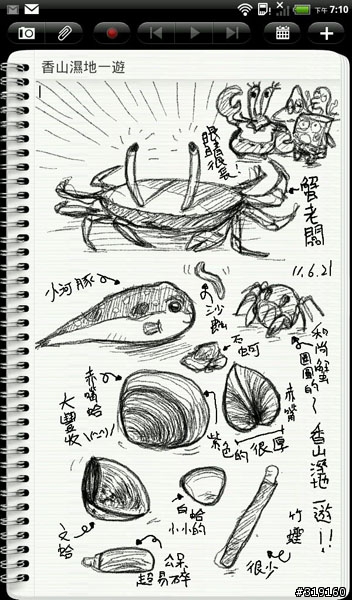 下午 7:10
香山濕地一遊
眼睛很長！
蟹老闆
11.6.21
小河豚
沙蟲
和尚蟹
圓圓的~
石蚵
赤嘴蛤
赤嘴
大豐收\(^^)/
紫色的
很厚
香山濕地一遊~!!
文蛤
白蛤
小小的
竹蟶
很少
公代
超易碎
#319160